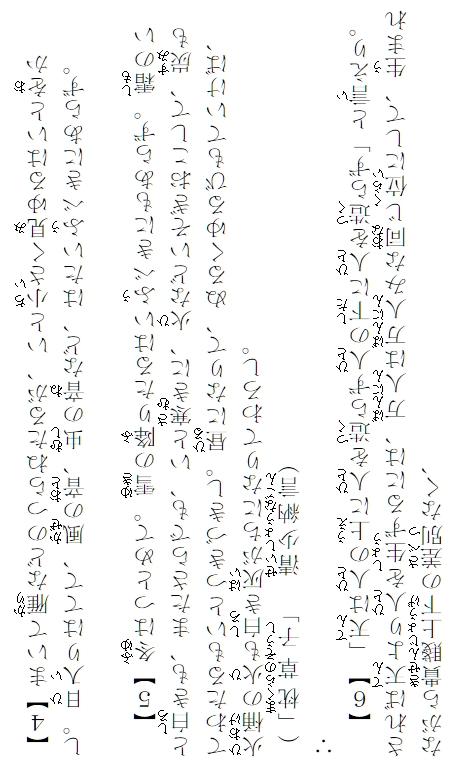 【4】 まいて雁などのつらねたるが、いと小さく見ゆるはいとをか
し。日入りはてて、風の音、虫の音など、はたいふべきにあらず。
【5】 冬はつとめて。雪の降りたるはいふべきにもあらず。霜のい
と白きも、またさらでも、いと寒きに、火などいそぎおこして、炭も
てわたるもいとつきづきし。昼になりて、ぬるくゆるびもていけば、
火桶の火も白き灰がちになりてわろし。
(「枕草子」 清少納言)
∴
【6】 「天は人の上に人を造らず人の下に人を造らず」と言えり。
されば天より人を生ずるには、万人は万人みな同じ位にして、生まれ
ながら貴賤上下の差別なく、